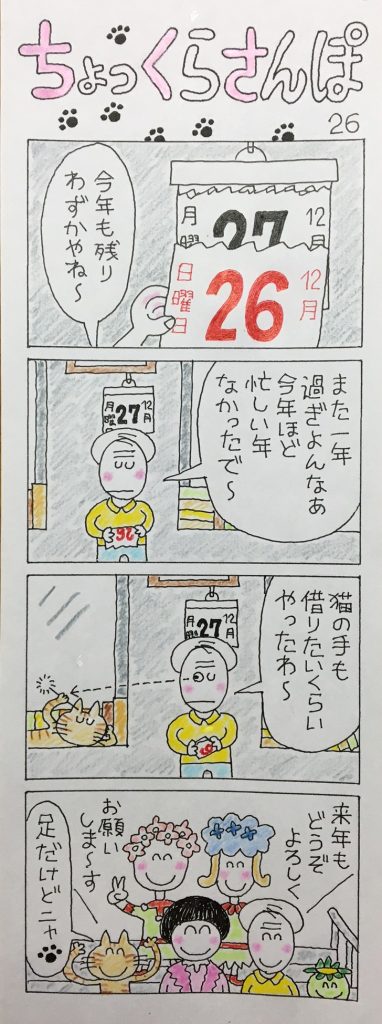 ちょっくらさんぽ
26
今年も残り
わずかやね〜
12月
27
月曜
12月
26
日曜日
また一年
過ぎよんなぁ
今年ほど
忙しい年
なかったで〜
12月
27
月曜日
26
猫の手も
借りたいくらい
やったわ〜
12月
27
月曜日
来年も
どうぞ
よろしく
お願い
しま〜す
足だけどニャ